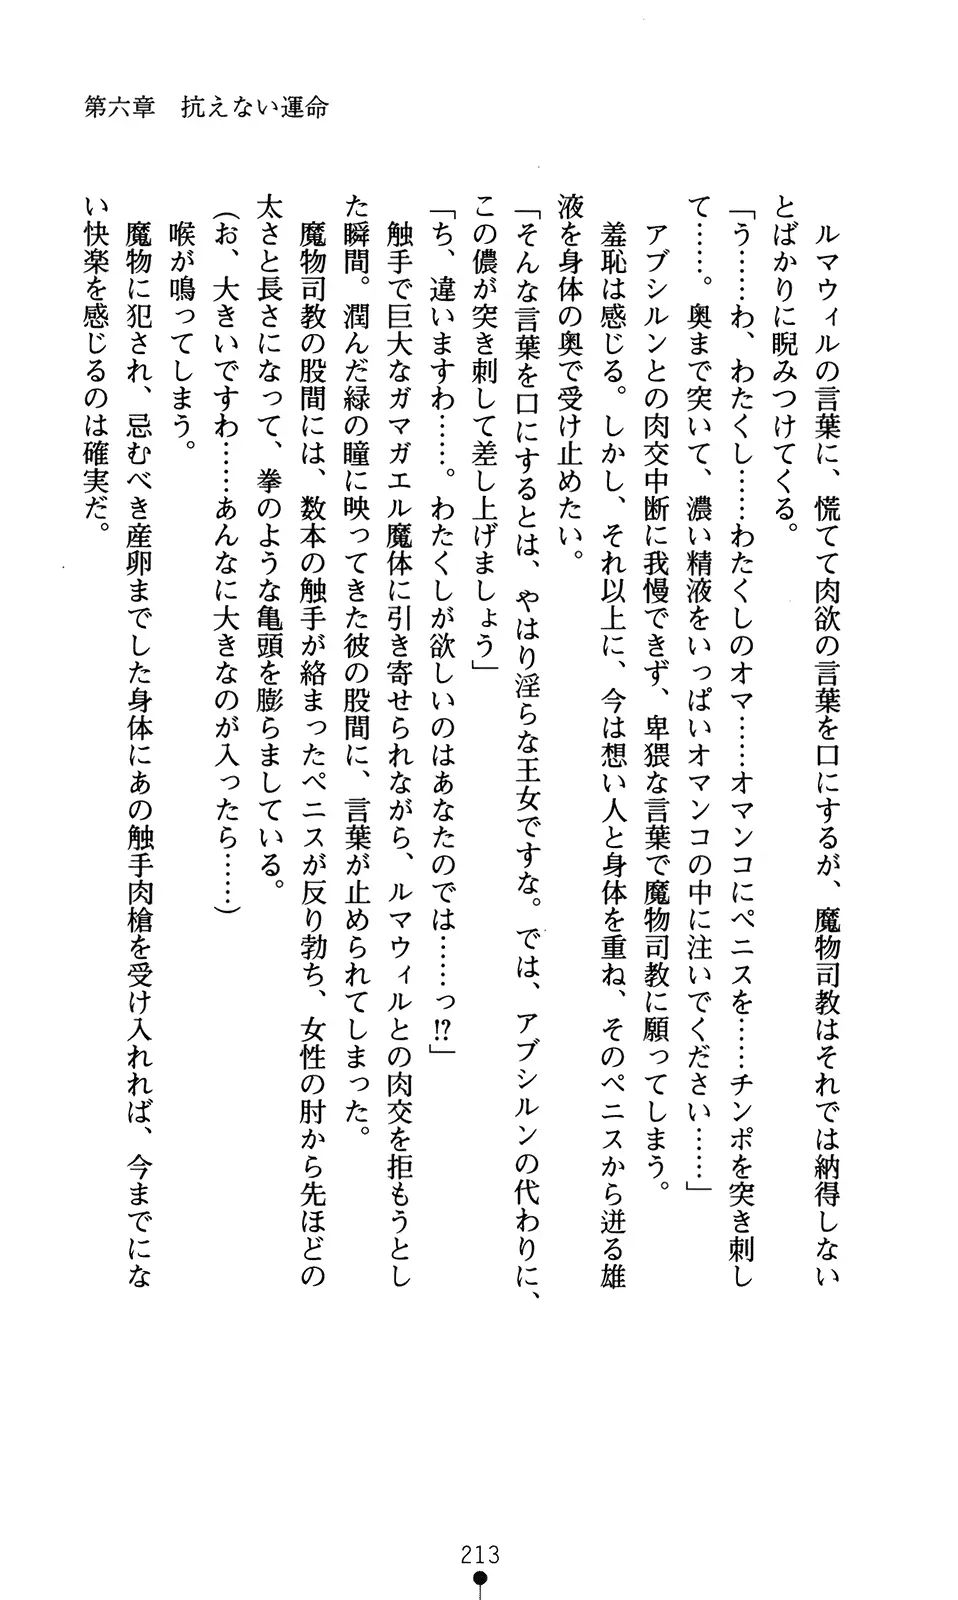 第六章　抗えない運命
　ルマウィルの言葉に、慌てて肉欲の言葉を口にするが、魔物司教はそれでは納得しない
とばかりに睨みつけてくる。
「う……わ、わたくし……わたくしのオマ……オマンコにペニスを……チンポを突き刺し
て……。奥まで突いて、濃い精液をいっぱいオマンコの中に注いでください……」
　アブシルンとの肉交中断に我慢できず、卑猥な言葉で魔物司教に願ってしまう。
　羞恥は感じる。しかし、それ以上に、今は想い人と身体を重ね、そのペニスから迸る雄
液を身体の奥で受け止めたい。
「そんな言葉を口にするとは、やはり淫らな王女ですな。では、アブシルンの代わりに、
この儂が突き刺して差し上げましょう」
「ち、違いますわ……。わたくしが欲しいのはあなたのでは……っ!?」
　触手で巨大なガマガエル魔体に引き寄せられながら、ルマウィルとの肉交を拒もうとし
た瞬間。潤んだ緑の瞳に映ってきた彼の股間に、言葉が止められてしまった。
　魔物司教の股間には、数本の触手が絡まったペニスが反り勃ち、女性の肘から先ほどの
太さと長さになって、拳のような亀頭を膨らましている。
（お、大きいですわ……あんなに大きなのが入ったら……）
　喉が鳴ってしまう。
　魔物に犯され、忌むべき産卵までした身体にあの触手肉槍を受け入れれば、今までにな
い快楽を感じるのは確実だ。
213